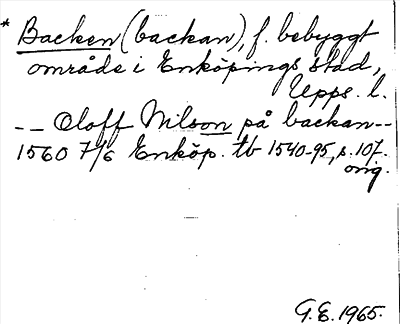 * Backen (backan), f. bebyggt
område i Enköpings stad,
Upps. l.
-- Oloff Nilson på backan --
1560 7/6 Enköp. tb 1540-95, s. 107.
orig.
G.E. 1965.